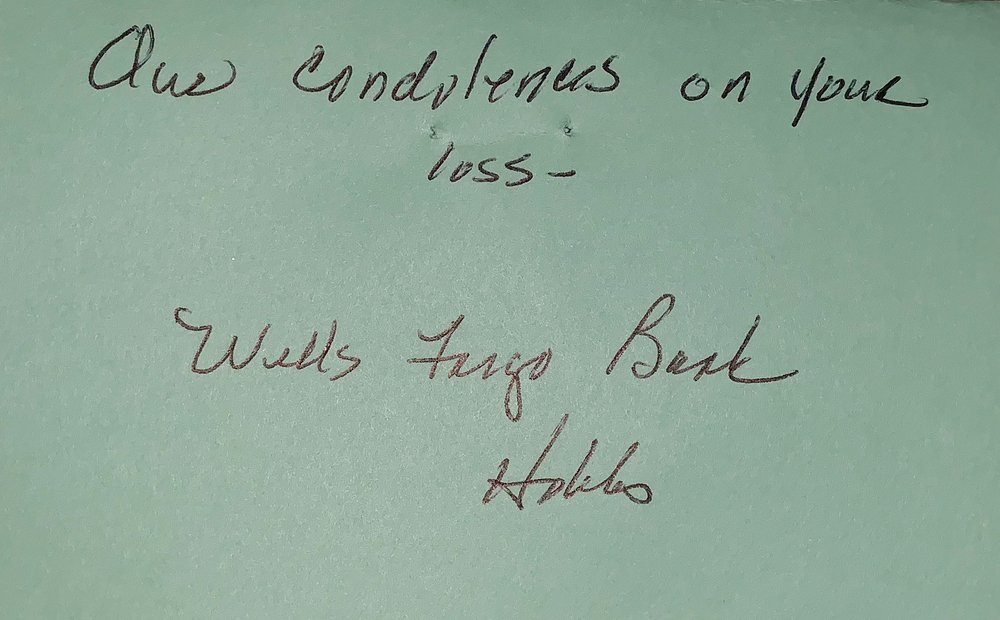 Our condolences on your
loss-
Wells Fargo Bank
Hobbs